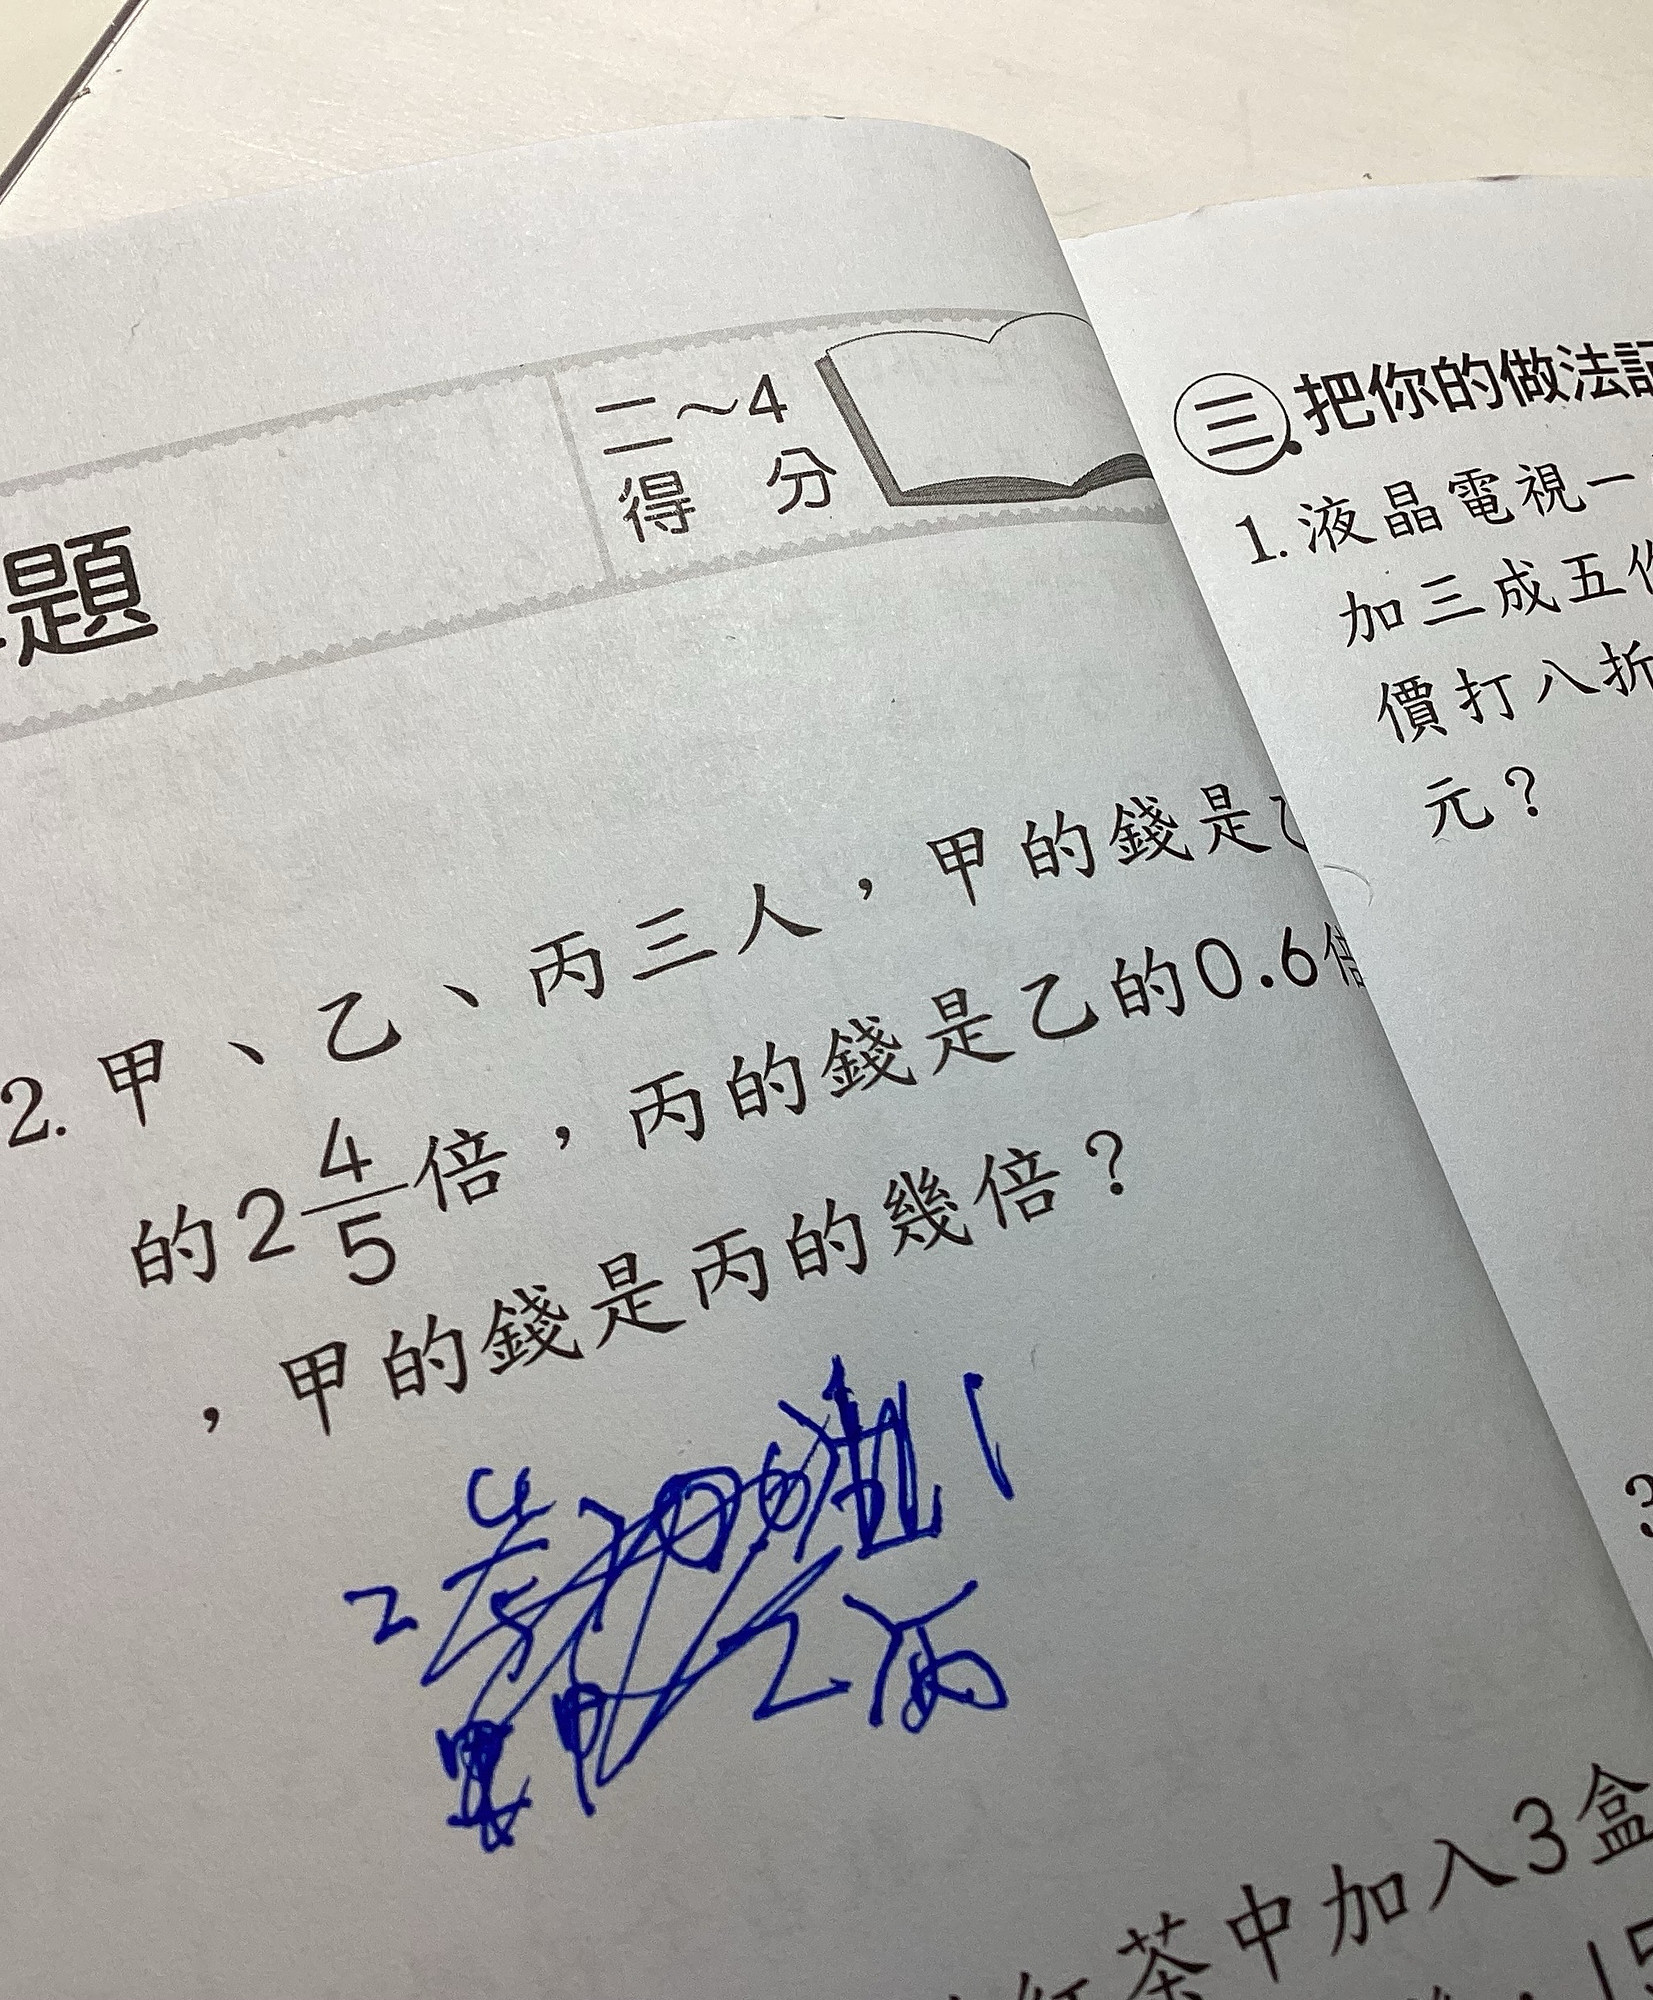 二~4
得 分
題
2. 甲、乙、丙三人，甲的錢是乙
的2 4/5倍，丙的錢是乙的0.6倍
，甲的錢是丙的幾倍？
2 4/5
甲 乙 丙
茶中加入3盒
三. 把你的做法記
1. 液晶電視一
加三成五作
價打八折
元？
3